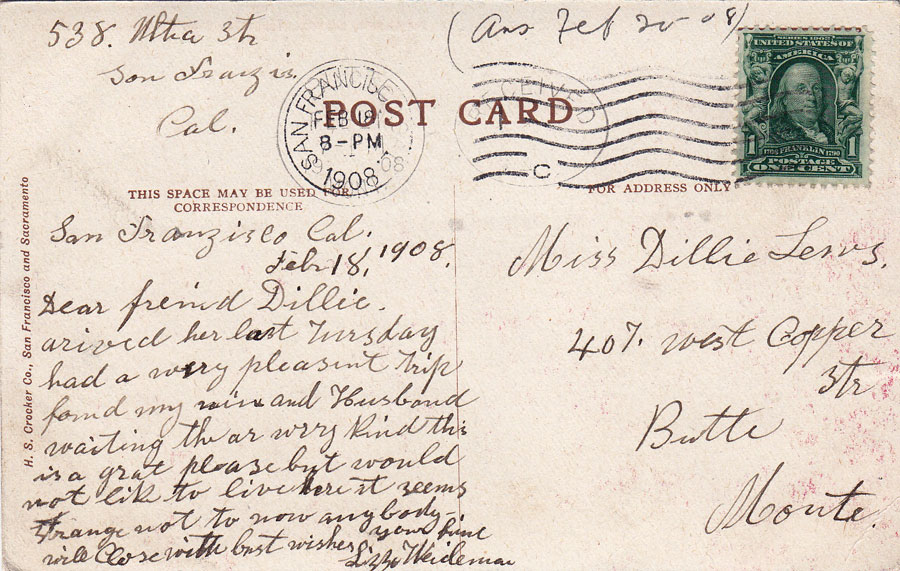 538. Utha Str
San Franzis
Cal.
(Ans Feb 20-08)
SAN FRANCISCO
FEB 18
8-PM
1908
RECEIVED
C
POST CARD
SERIES 1902
UNITED STATES OF
AMERICA
1706 FRANKLIN 1790
1 POSTAGE 1
ONE CENT
THIS SPACE MAY BE USED FOR
CORRESPONDENCE
FOR ADDRESS ONLY
H. S. Crocker Co., San Francisco and Sacramento
San Franzisco Cal.
Febr 18, 1908.
Dear freind Dillie.
arived her last Tursday
had a very pleasent trip
fond my and Husband
waiting the ar very kind this
is a grat please but would
not lik to live here it seems
strange not to now anybody-
will Close with best wishes your
Lizzie Weideman
Miss Dillie Lewis.
407. west Copper
Str
Butte
Monte.